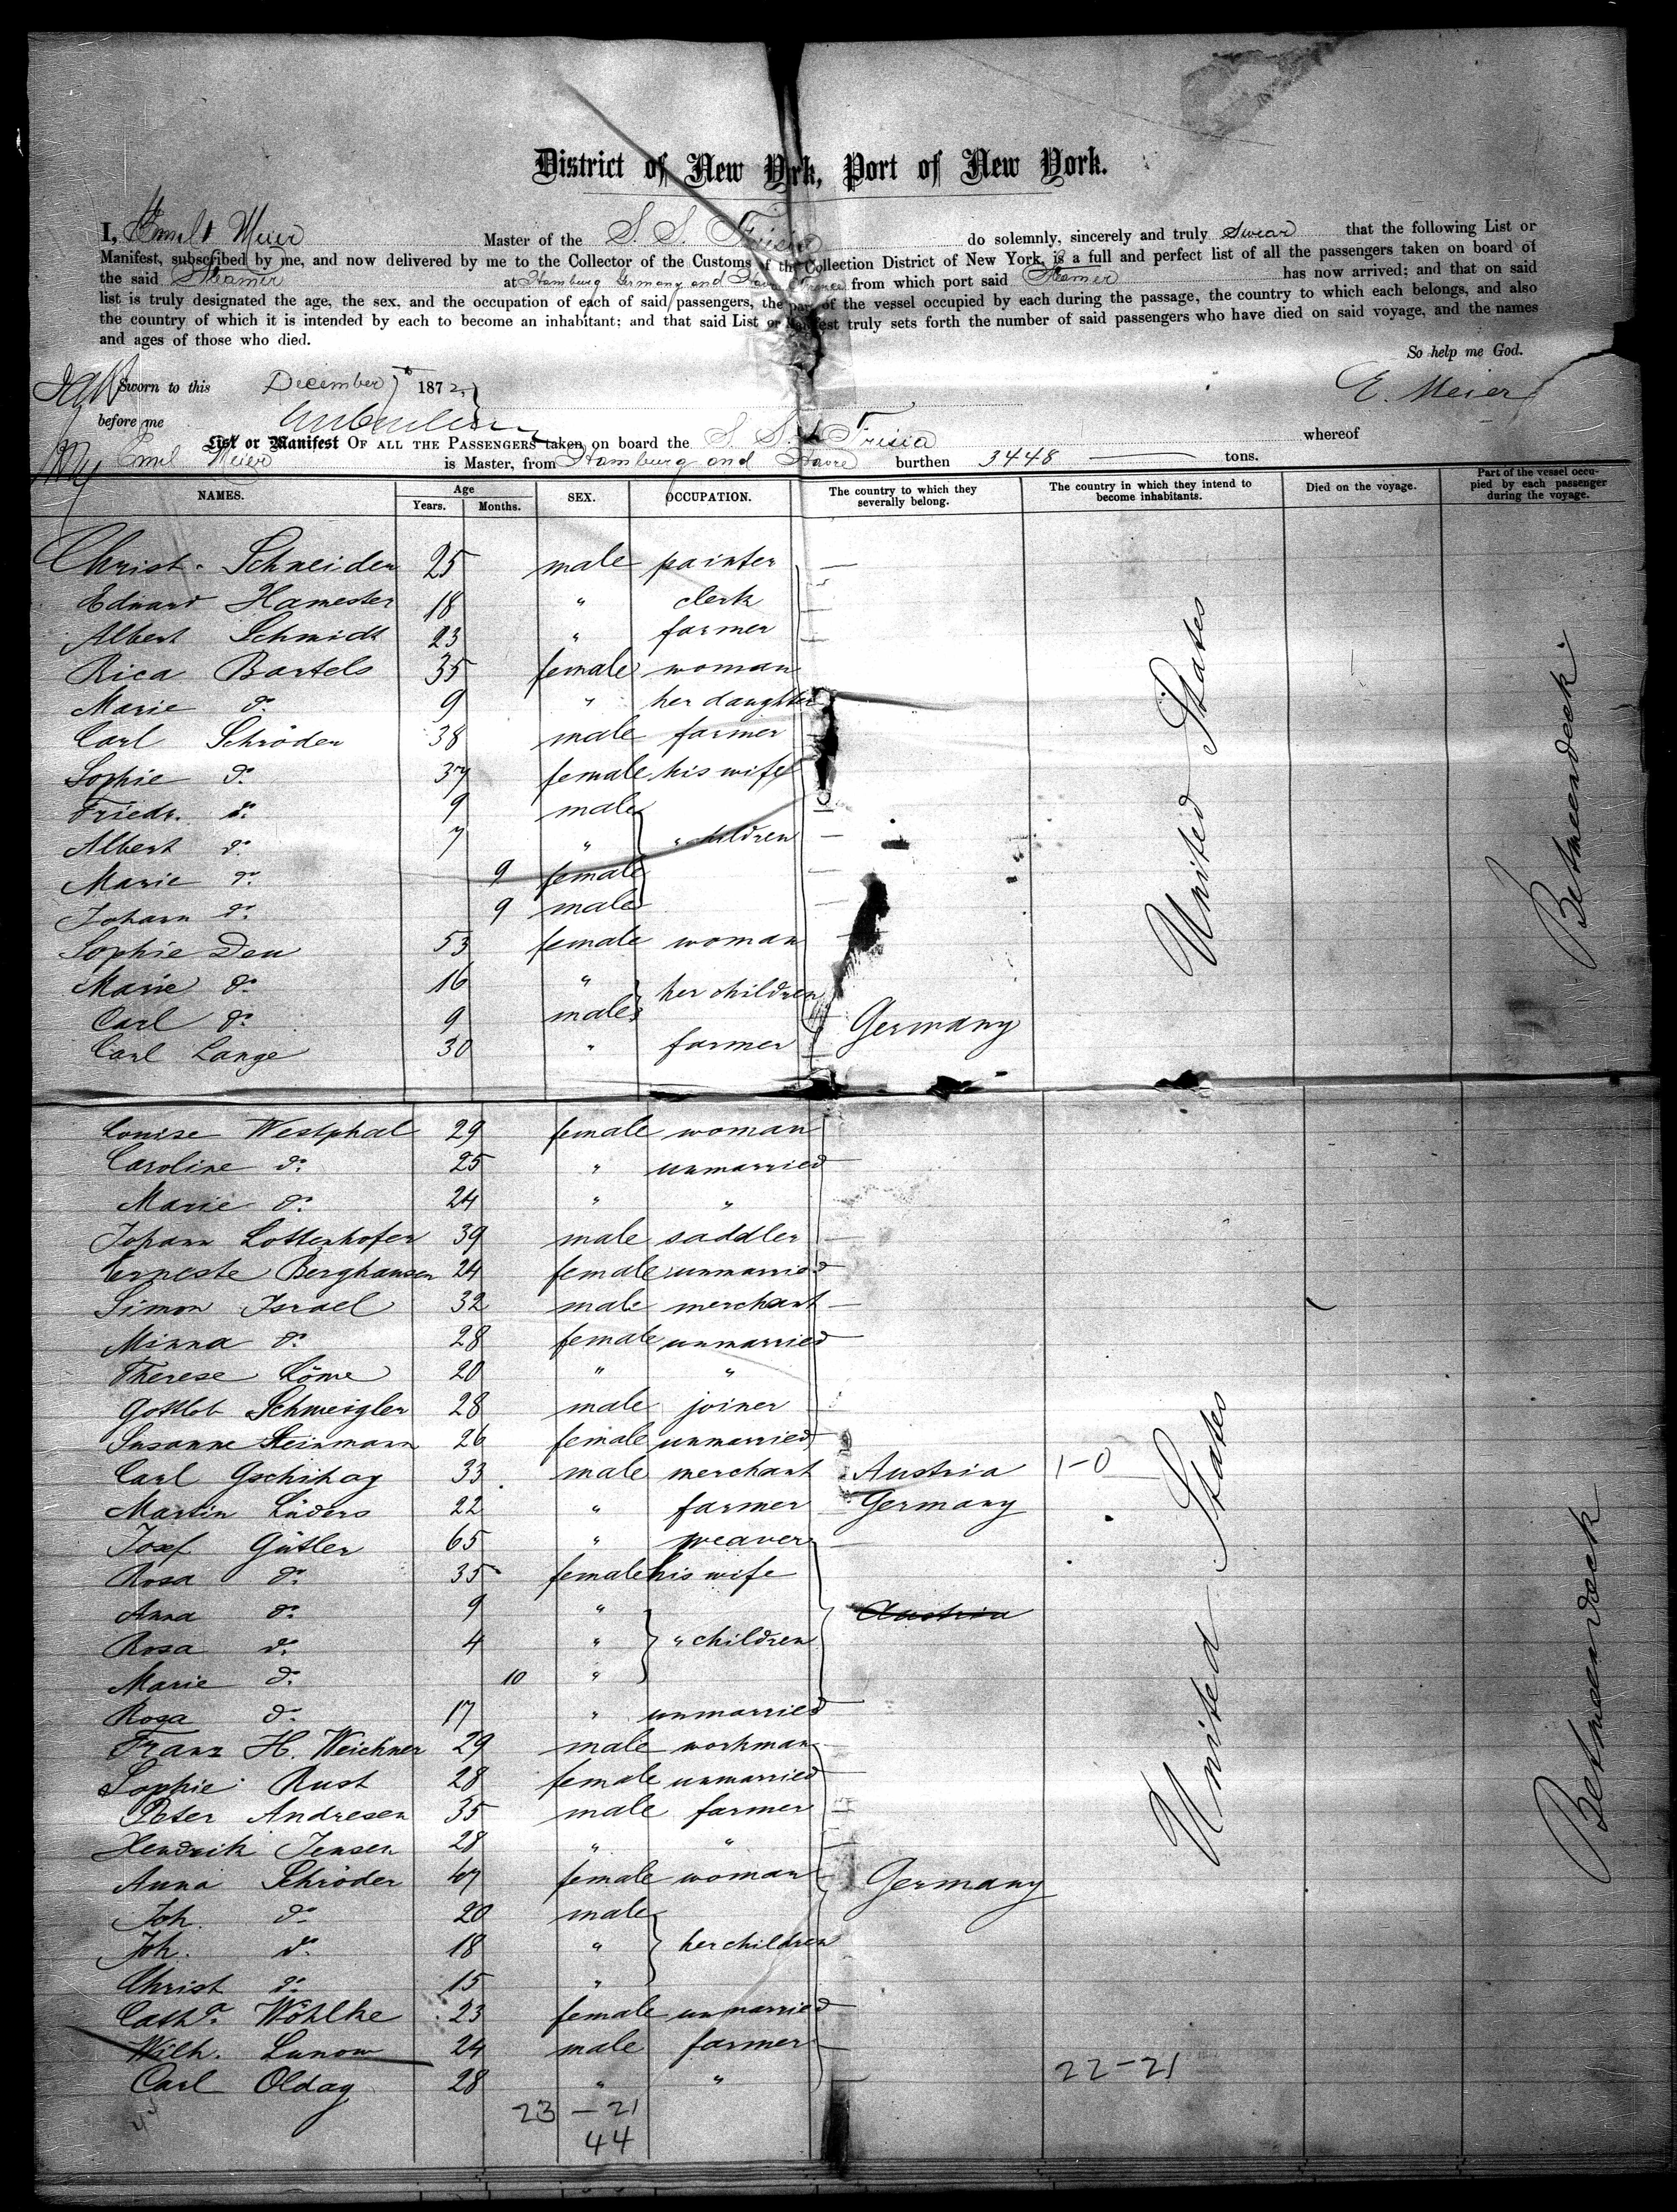 District of New York, Port of New York.
I, Emil Meier Master of the S. S. Frisia do solemnly, sincerely and truly Swear that the following List or
Manifest, subscribed by me, and now delivered by me to the Collector of the Customs of the Collection District of New York, is a full and perfect list of all the passengers taken on board of
the said Steamer at Hamburg Germany and Havre France from which port said Steamer has now arrived; and that on said
list is truly designated the age, the sex, and the occupation of each of said passengers, the part of the vessel occupied by each during the passage, the country to which each belongs, and also
the country of which it is intended by each to become an inhabitant; and that said List or Manifest truly sets forth the number of said passengers who have died on said voyage, and the names
and ages of those who died.
So help me God.
Sworn to this December 7th 1872, E. Meier
before me
List or Manifest OF ALL THE PASSENGERS taken on board the S. S. Frisia whereof
Emil Meier is Master, from Hamburg and Havre burthen 3448 tons.
NAMES. Age Years. Months. SEX. OCCUPATION. The country to which they severally belong. The country in which they intend to become inhabitants. Died on the voyage. Part of the vessel occupied by each passenger during the voyage.
Christ. Schneider 25 male painter
Eduard Hamester 18 " clerk
Albert Schmidt 23 " farmer
Rica Bartels 35 female woman
Marie do. 9 " her daughter
Carl Schröder 38 male farmer
Sophie do. 37 female his wife
Friedr. do. 9 male
Albert do. 7 " " children
Marie do. 9 female
Johann do. 9 male
Sophie Deu 53 female woman
Marie do. 16 " her children
Carl do. 9 male
Carl Lange 30 " farmer Germany
United States
Betweendeck
Louise Westphal 29 female woman
Caroline do. 25 " unmarried
Marie do. 24 " "
Johann Lottenhofer 39 male saddler
Erneste Berghausen 24 female unmarried
Simon Israel 32 male merchant
Minna do. 28 female unmarried
Therese Löwe 20 " "
Gottlob Schweigler 28 male joiner
Susanne Steinmann 26 female unmarried
Carl Gschihay 33 male merchant Austria 1-0
Martin Lüders 22 " farmer Germany
Josef Gütler 65 " weaver
Rosa do. 35 female his wife
Anna do. 9 " Austria
Rosa do. 4 " " children
Marie do. 10 "
Rosa do. 17 " unmarried
Franz H. Weichner 29 male workman
Sophie Rust 28 female unmarried
Peter Andresen 35 male farmer
Hendrik Jensen 28 " "
Anna Schröder 47 female woman Germany
Joh. do. 20 male
Joh. do. 18 " her children
Christ do. 15 "
Catha. Wöhlke 23 female unmarried
Wilh. Lunow 24 male farmer
Carl Oldag 28 " " 22-21
United States
Betweendeck
23 - 21
44